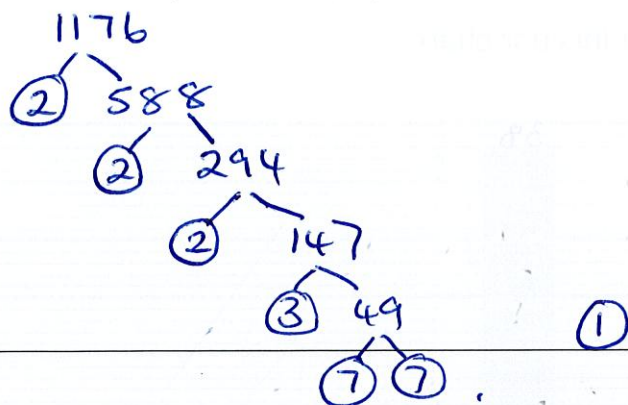 1176
2 588
2 294
2 147
3 49
1
7 7